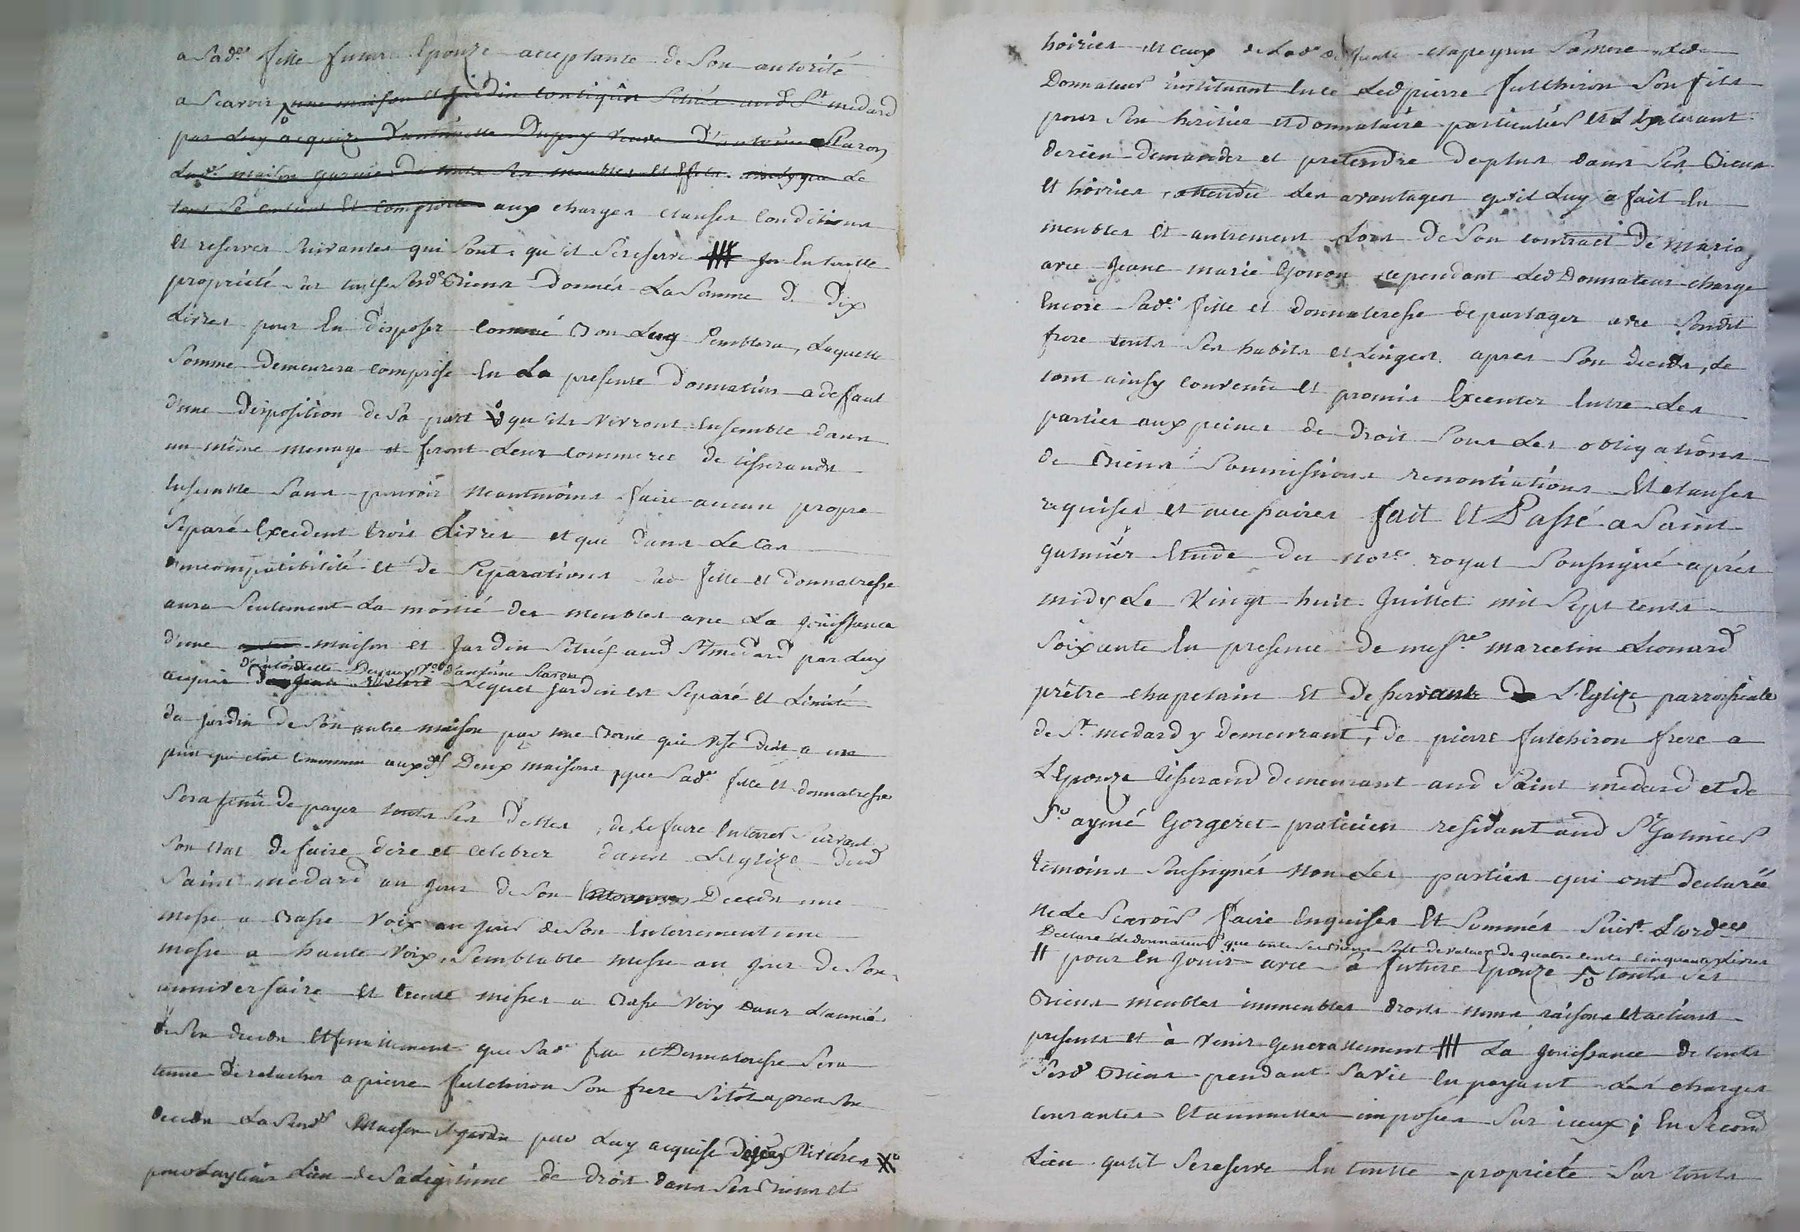 a sad.e fille future Epouze acceptante de Son autorité
a scavoir une maison et jardin contigus situés aud. St. medard
par Luy acquize d'antoinette Dupuy veuve d'antoine Staron
La.e maison garnie de touts ses meubles et effets le
tout se contient et comporte aux charges clauses conditions
et reserves suivantes qui sont qu'il se reserve En toutte
propriété sur touts sesd. Biens donnés La Somme de dix
Livres pour En disposer comme Bon Luy semblera, Laquelle
somme demeurera comprise En La presente donnation a defaut
d'une disposition de sa part qu'ils vivront Ensemble dans
un même menage et feront Leur commerce de tisserands
Ensemble sans pouvoir neantmoins faire aucun propre
separé Excedent trois Livres et que dans Le cas
d'incompatibilité et de separations sad. fille et donnatresse
aura seulement La moitié des meubles avec La jouissance
d'une maison et jardin situés aud. St. medard par Luy
d'antoinette Dupuy v.e d'antoine Staron
acquis Lequel jardin est separé et Limité
du jardin de son autre maison par une Borne qui vise droit a un
puis qui est commun auxd. Deux maisons, que sad.e fille et donnatresse
sera tenüe de payer touts ses dettes, de Le faire Enterrer suivant
son Etat de faire dire et celebrer dans L'eglize dud.
Saint medard au jour de son Decedz une
messe a Basse voix au jour de son Enterrement une
messe a haute voix, semblable messe au jour de son
anniversaire et trente messes a Basse voix dans L'année
de son decedz Et finalement que sad. fille et Donnatresse sera
tenue de relacher a pierre futchiron son frere sitot apres son
decedz La susd. Maison et jardin par Luy acquise
pour Luy tenir Lieu de sa Legitime de droit dans ses Biens et
hoiries et ceux de Lad.e sa mere Led.
Donnateur instituant En ce Led pierre futchiron son fils
pour son heritier et donnataire particulier et L'Excluant
de rien demander et pretendre de plus dans ses Biens
et hoiries, attendu Les avantages qu'il Luy a fait En
meubles et autrement Lors de son contract de mariag
avec jeane marie Gonon cependant Led Donnateur charge
Encore sad.e fille et donnateresse de partager avec sondit
frere touts ses habits et Linges apres son decedz, Le
tout ainsy convenu et promis Executer Entre Les
parties aux peines de droit sous Les obligations
de Biens soumissions renontiations Et clauses
requises et necessaires fait Et Passé a Saint
galmier Etude du not.re royal soussigné après
midy Le vingt huit Juillet mil sept cents
soixante En presence de mes.re marcelin Leonard
prêtre chapelain et desservant de L'Eglize parroissiale
de St. medard y demeurant, de pierre futchiron frere a
L'Epouze tisserand demeurant aud Saint medard et de
S.r aymé Gorgeret praticien residant aud St Galmier
temoins soussignés non Les parties qui ont declarée
ne Le Scavoir faire Enquises Et sommés suiv.t L'ord.ce
Declare Le donnateur que touts ses Biens sont de valeur de quatre cents cinquante Livres
# pour En jouir avec sa future Epouze touts ses
Biens meubles immeubles droits noms raisons et actions
presents et à venir generallement # La jouissance de touts
sesd Biens pendant sa vie En payant Les charges
courantes Et annuelles imposées sur iceux; En second
Lieu qu'il se reserve En toutte propriété sur touts